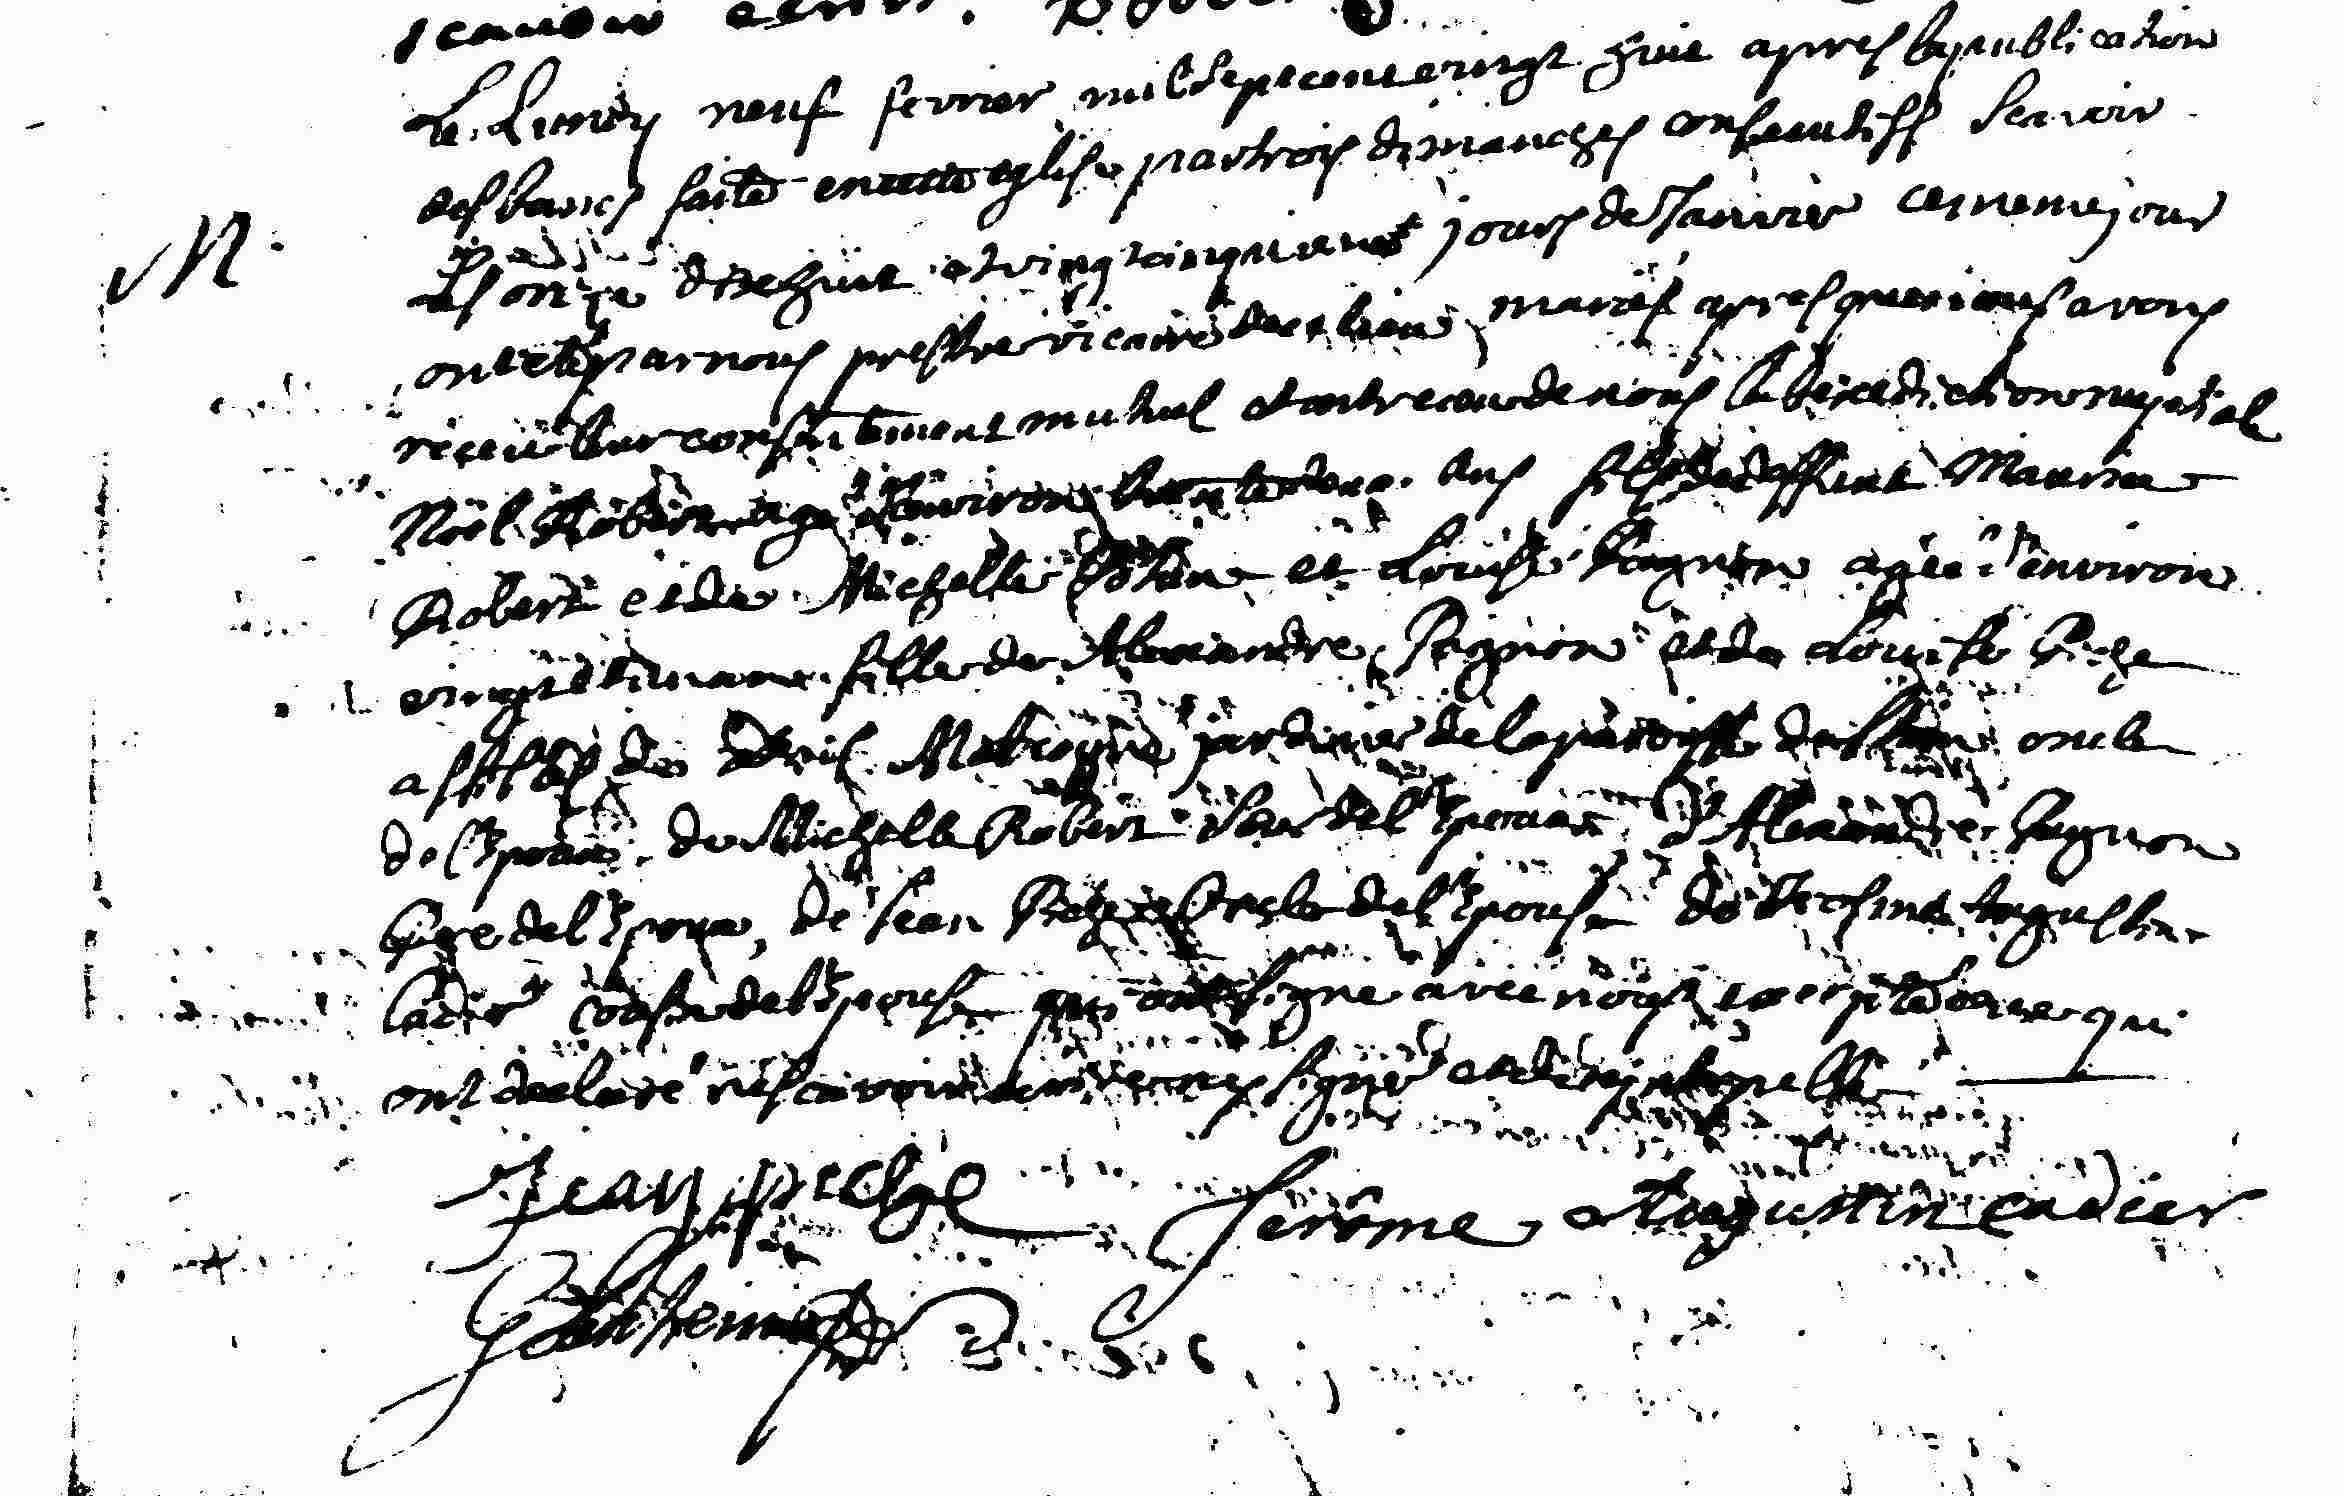 Le Lundy neuf fevrier mil sept cent vingt huit apres la publication
des bancs faite en cette eglise par trois dimanches consecutifs scavoir
Les onze dixe huit et vingt cinquieme jours de Janvier ce meme jour
ont eté par nous prestre vicaire de ce lieu mariés apres que nous avons
receu leur consentement mutuel et ont receu de nous la benediction nuptiale
Nöel Robert agé d'environ trente deux ans fils de deffunt Maurice
Robert et de Michelle et Louise Pagnon agée d'environ
vingt et un ans fille de Alexandre Pagnon et de Louise Piche
assistés de jardinier de la paroisse de oncle
de l'Epoux, de Michelle Robert Seur de l'Epoux d'Alexandre Pagnon
Pere de l'Epouse, de Jean Piche Oncle de l'Epouse de Augustin
Cadier Cousin de l'Epouse qui ont signe avec nous excepté ceux qui
ont declaré ne scavoir ecrire ny signer
Jean piche Jerôme Augustin cadier